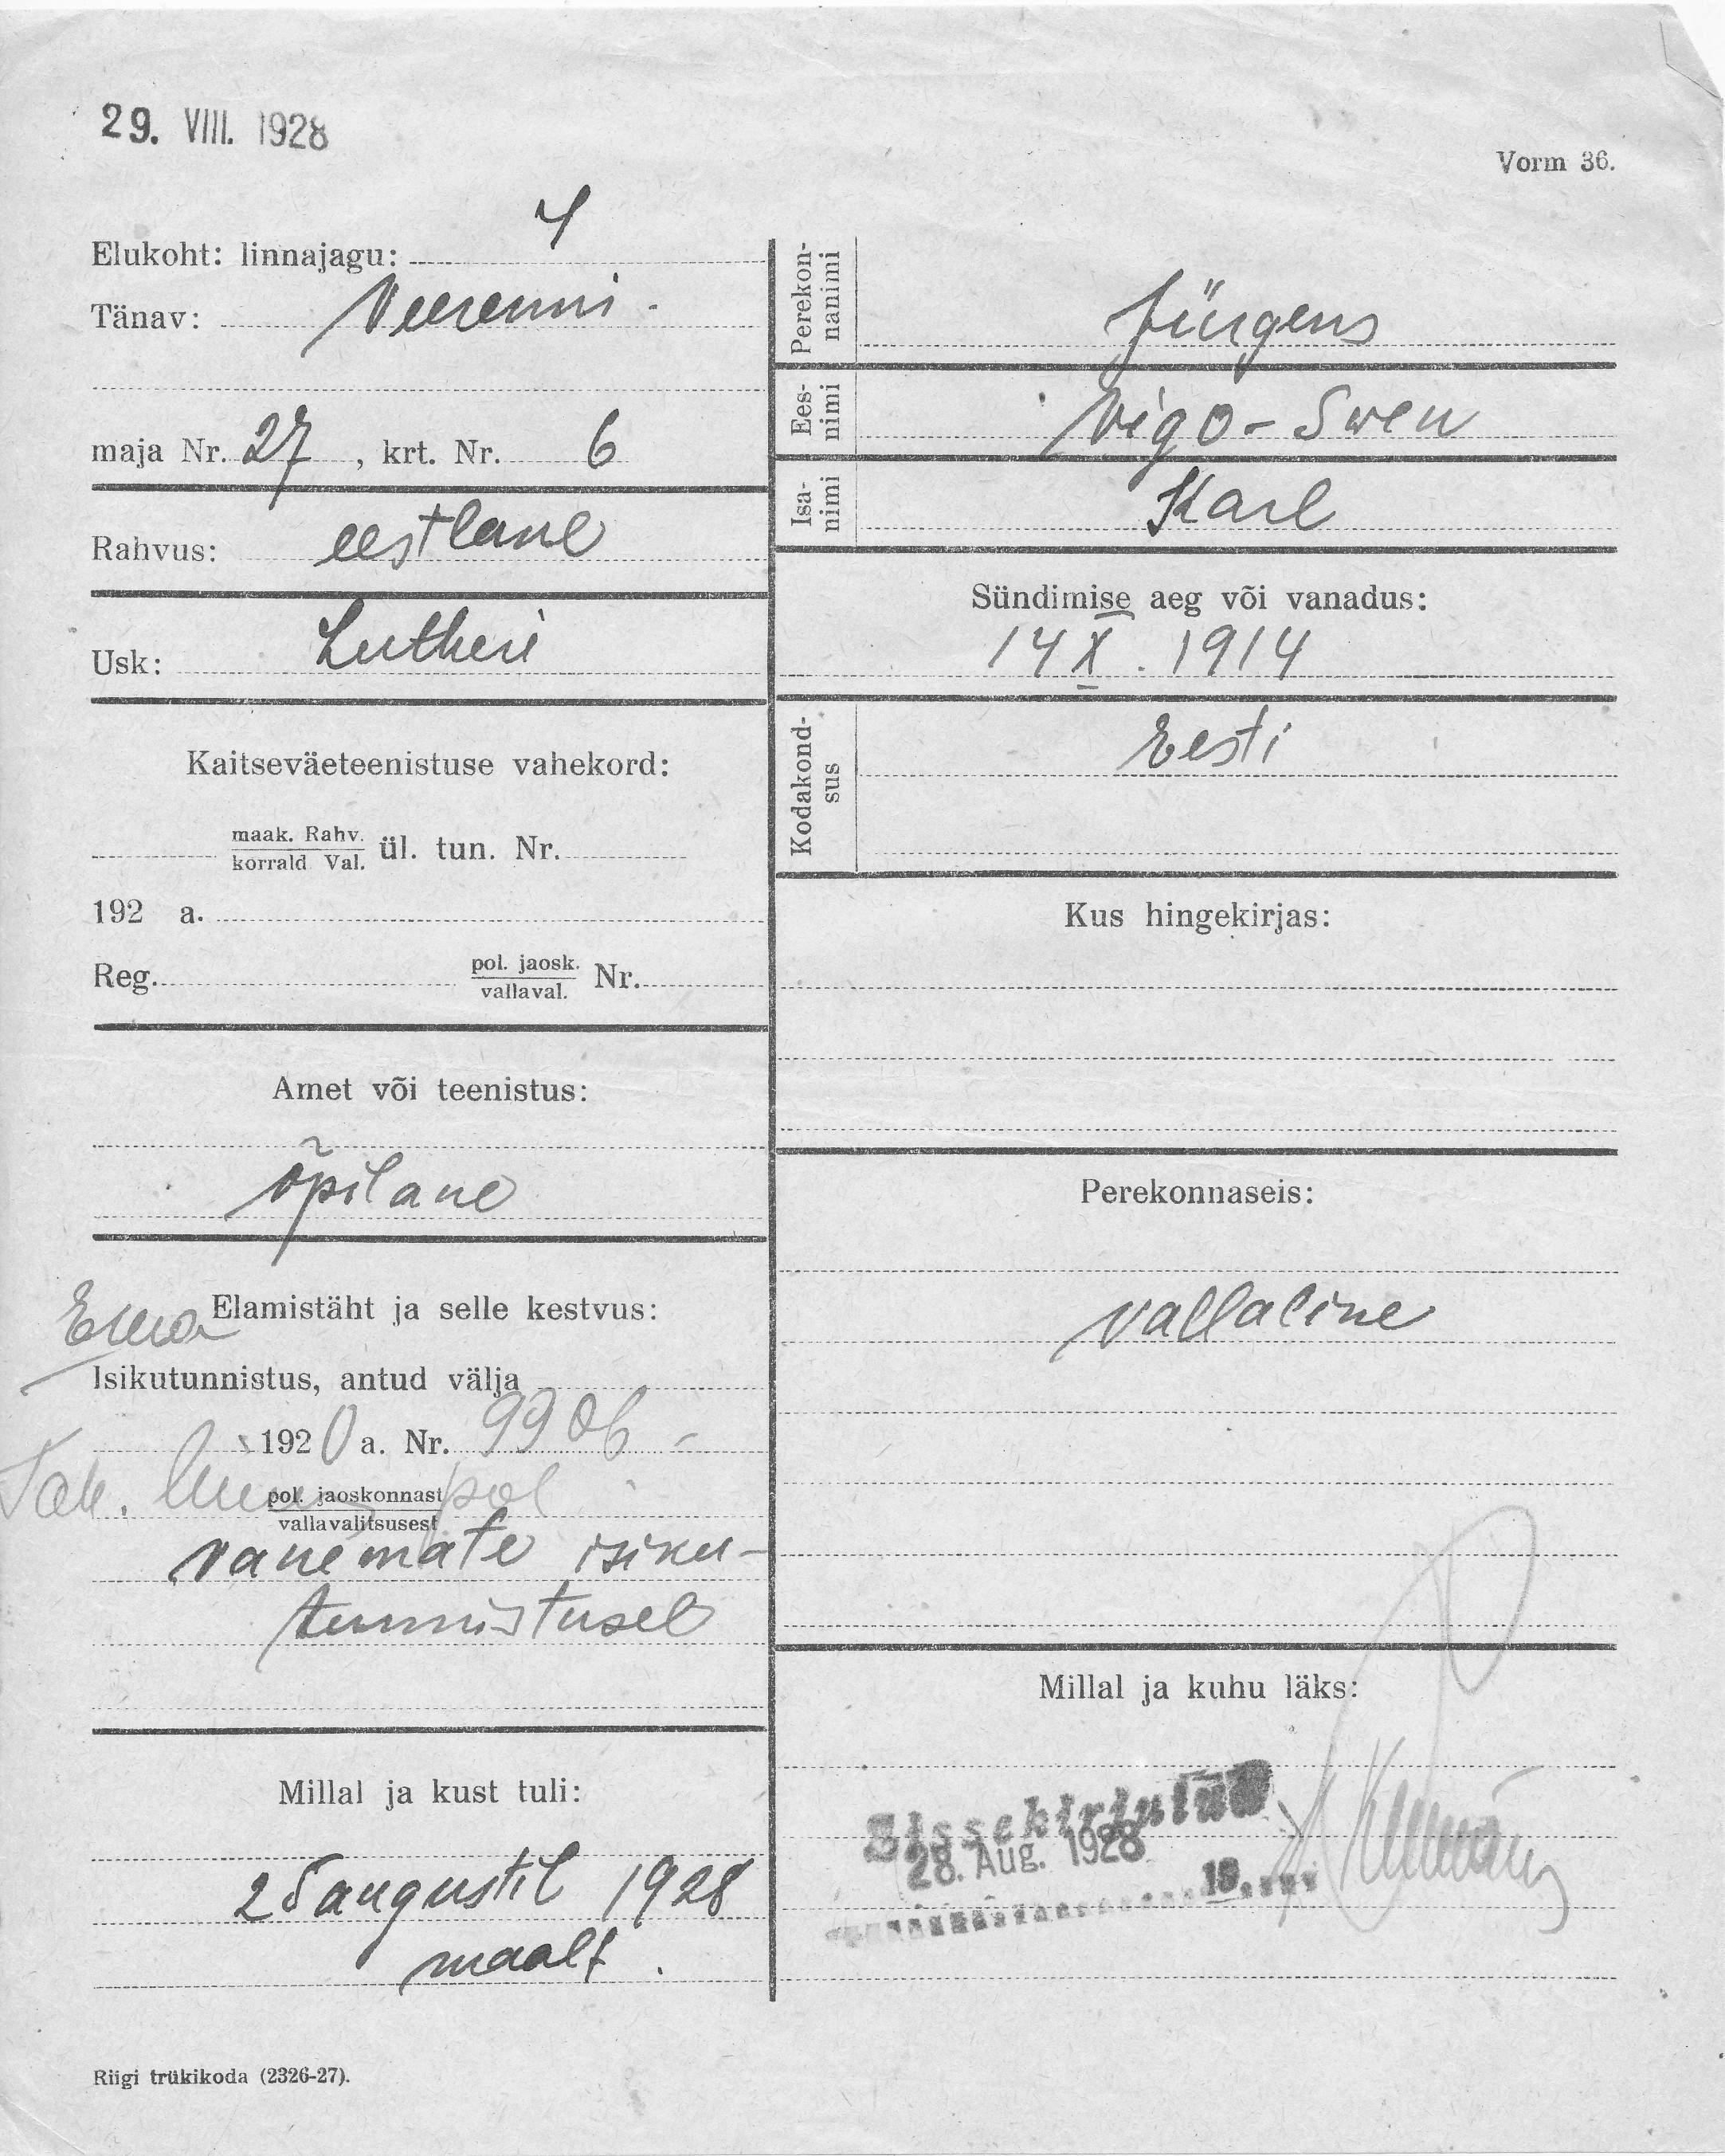 29. VIII. 1928
Vorm 36.
Elukoht: linnajagu: 4
Tänav: Veerenni.
maja Nr. 27, krt. Nr. 6
Rahvus: eestlane
Usk: Lutheri
Kaitseväeteenistuse vahekord:
maak. Rahv.
korrald Val. ül. tun. Nr.
192 a.
Reg. pol. jaosk.
vallaval. Nr.
Amet või teenistus:
õpilane
Elamistäht ja selle kestvus:
Ema
Isikutunnistus, antud välja
1920 a. Nr. 9906
pol. jaoskonnast
vallavalitsusest
pol
vanemate isiku-
tunnistusel
Millal ja kust tuli:
25 augustil 1928
maalt.
Riigi trükikoda (2326-27).
Perekon-
nanimi
Jürgens
Ees-
nimi
Vigo-Swen
Isa-
nimi
Karl
Sündimise aeg või vanadus:
14 X. 1914
Kodakond-
sus
Eesti
Kus hingekirjas:
Perekonnaseis:
vallaline
Millal ja kuhu läks:
Sissekirjutatud
28. Aug. 1928
19.